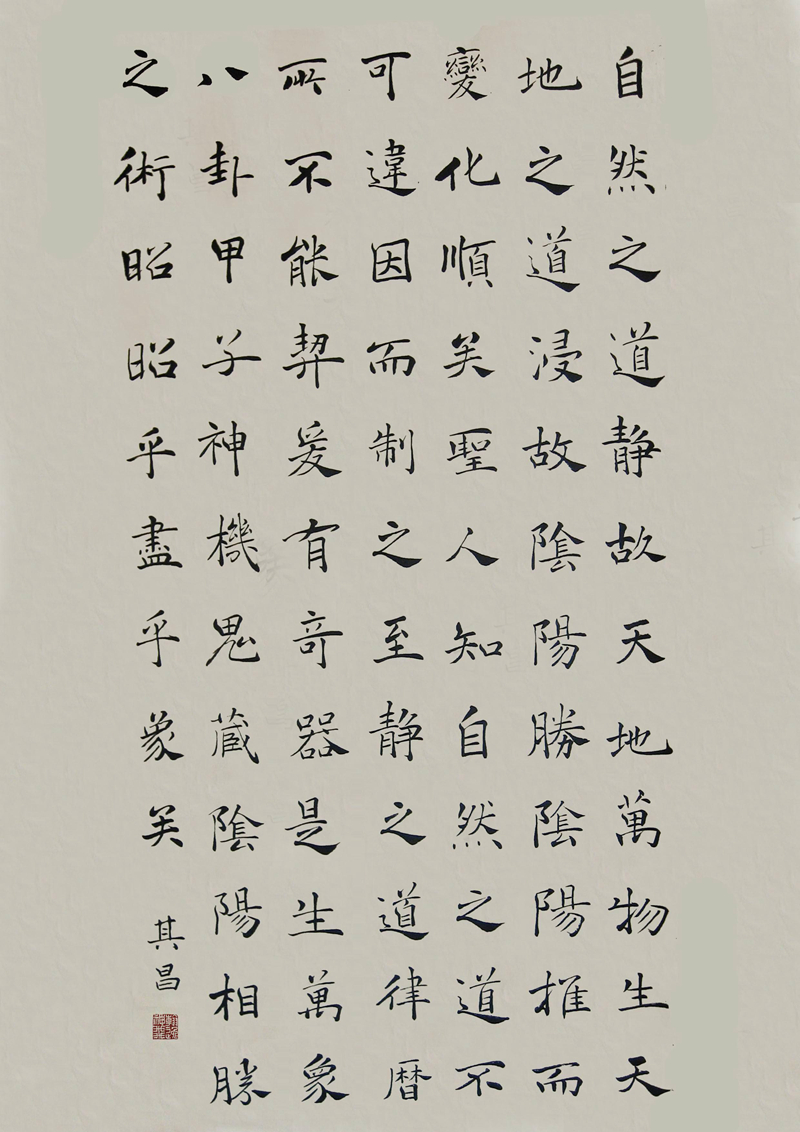 自然之道靜故天地萬物生天
地之道浸故陰陽勝陰陽推而
變化順矣聖人知自然之道不
可違因而制之至靜之道律曆
所不能契爰有奇器是生萬象
八卦甲子神機鬼藏陰陽相勝
之術昭昭乎盡乎象矣
其昌